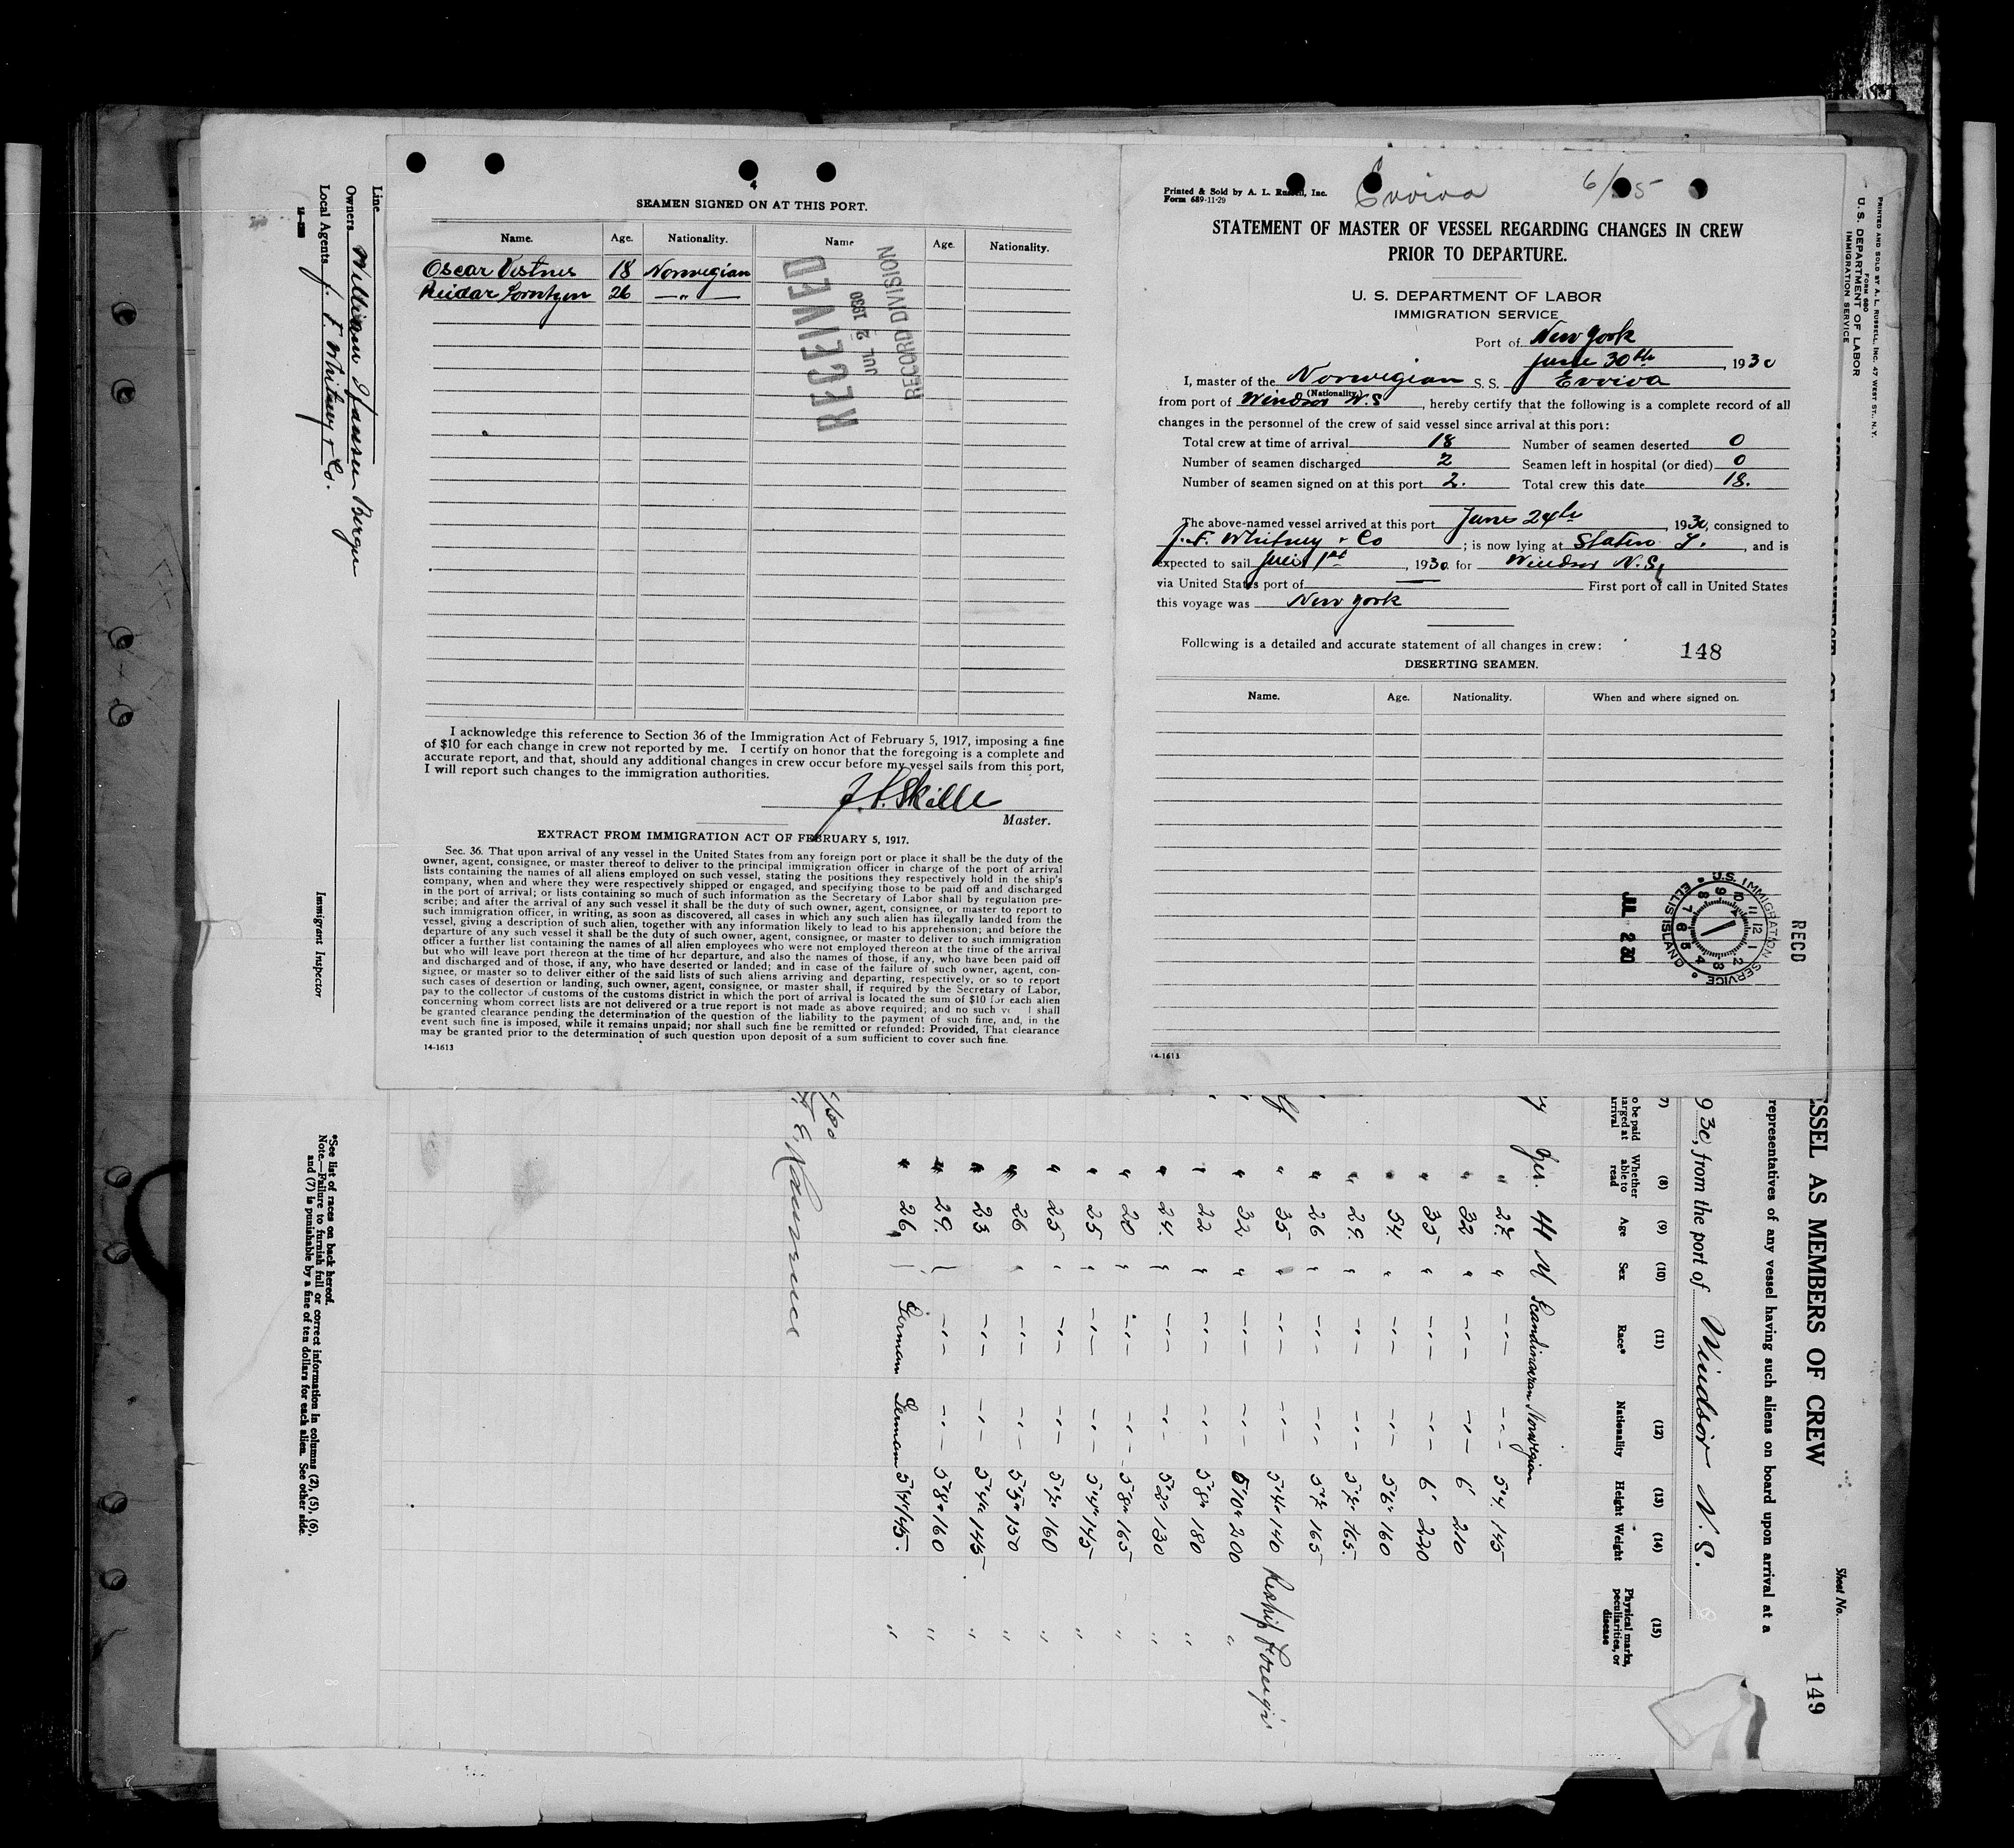 4
SEAMEN SIGNED ON AT THIS PORT.
Name. Age. Nationality. Name Age. Nationality.
Oscar Vestnes 18 Norwegian
Reidar Lorntzen 26 — " —
RECEIVED
JUL 2 1930
RECORD DIVISION
I acknowledge this reference to Section 36 of the Immigration Act of February 5, 1917, imposing a fine
of $10 for each change in crew not reported by me. I certify on honor that the foregoing is a complete and
accurate report, and that, should any additional changes in crew occur before my vessel sails from this port,
I will report such changes to the immigration authorities.
Skille
Master.
EXTRACT FROM IMMIGRATION ACT OF FEBRUARY 5, 1917.
Sec. 36. That upon arrival of any vessel in the United States from any foreign port or place it shall be the duty of the
owner, agent, consignee, or master thereof to deliver to the principal immigration officer in charge of the port of arrival
lists containing the names of all aliens employed on such vessel, stating the positions they respectively hold in the ship's
company, when and where they were respectively shipped or engaged, and specifying those to be paid off and discharged
in the port of arrival; or lists containing so much of such information as the Secretary of Labor shall by regulation pre-
scribe; and after the arrival of any such vessel it shall be the duty of such owner, agent, consignee, or master to report to
such immigration officer, in writing, as soon as discovered, all cases in which any such alien has illegally landed from the
vessel, giving a description of such alien, together with any information likely to lead to his apprehension; and before the
departure of any such vessel it shall be the duty of such owner, agent, consignee, or master to deliver to such immigration
officer a further list containing the names of all alien employees who were not employed thereon at the time of the arrival
but who will leave port thereon at the time of her departure, and also the names of those, if any, who have been paid off
and discharged and of those, if any, who have deserted or landed; and in case of the failure of such owner, agent, con-
signee, or master so to deliver either of the said lists of such aliens arriving and departing, respectively, or so to report
such cases of desertion or landing, such owner, agent, consignee, or master shall, if required by the Secretary of Labor,
pay to the collector of customs of the customs district in which the port of arrival is located the sum of $10 for each alien
concerning whom correct lists are not delivered or a true report is not made as above required; and no such v l shall
be granted clearance pending the determination of the question of the liability to the payment of such fine, and, in the
event such fine is imposed, while it remains unpaid; nor shall such fine be remitted or refunded: Provided, That clearance
may be granted prior to the determination of such question upon deposit of a sum sufficient to cover such fine.
14-1613
Printed & Sold by A. L. Russell, Inc.
Form 689-11-29
Evviva 6/25
STATEMENT OF MASTER OF VESSEL REGARDING CHANGES IN CREW
PRIOR TO DEPARTURE.
U. S. DEPARTMENT OF LABOR
IMMIGRATION SERVICE
Port of New York
June 30th, 1930
I, master of the Norwegian S. S. Evviva
(Nationality)
from port of Windsor N.S, hereby certify that the following is a complete record of all
changes in the personnel of the crew of said vessel since arrival at this port:
Total crew at time of arrival 18 Number of seamen deserted 0
Number of seamen discharged 2 Seamen left in hospital (or died) 0
Number of seamen signed on at this port 2. Total crew this date 18.
The above-named vessel arrived at this port June 24th, 1930, consigned to
J. F. Whitney & Co; is now lying at Staten I., and is
expected to sail 1st, 1930 for Windsor N.S,
via United States port of — First port of call in United States
this voyage was New York
Following is a detailed and accurate statement of all changes in crew:
148
DESERTING SEAMEN.
Name. Age. Nationality. When and where signed on.
JUL 2 30
U.S. IMMIGRATION SERVICE
ELLIS ISLAND
RECD
14-1613
PRINTED AND SOLD BY A. L. RUSSELL, INC. 47 WEST ST., N.Y.
FORM 680
U. S. DEPARTMENT OF LABOR
IMMIGRATION SERVICE
Sheet No.
149
SSEL AS MEMBERS OF CREW
representatives of any vessel having such aliens on board upon arrival at a
930, from the port of Windsor N.S.
7) (8) (9) (10) (11) (12) (13) (14) (15)
o be paid arged at arrival Whether able to read Age Sex Race* Nationality Height Weight Physical marks, peculiarities, or disease
Yes. 41 M Scandinavian Norwegian
" 27. " -"- -"- 5'4. 145
" 32 " -"- -"- 6' 210
" 35 " -"- -"- 6' 220
" 54. " -"- -"- 5'6" 160
" 29. " -"- -"- 5'7" 165.
" 26 " -"- -"- 5'7. 165
" 35 " -"- -"- 5'4" 140 Reship Foreign
" 32 " -"- -"- 5'10" 200 "
" 22 " -"- -"- 5'8" 180 "
" 24. " -"- -"- 5'2" 130 "
" 20 " -"- -"- 5'8" 165 "
" 25 " -"- -"- 5'4" 145 "
" 25 " -"- -"- 5'7" 160 "
" 26 " -"- -"- 5'5" 150 "
" 23 -"- -"- 5'4" 145 "
" 29. -"- -"- 5'8" 160 "
" 26, German German 5'4 145. "
Line
Owners William Hansen Bergen
Local Agents J. F. Whitney & Co.
Immigrant Inspector
*See list of races on back hereof.
Note.—Failure to furnish full or correct information in columns (2), (5), (6),
and (7) is punishable by a fine of ten dollars for each alien. See other side.